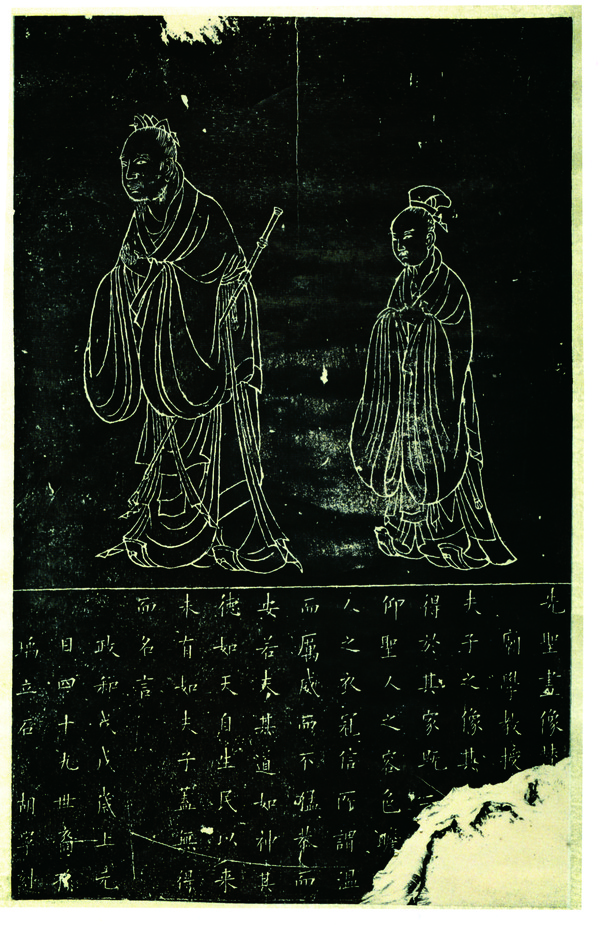 先聖畫像
廟學教授
夫子之像其
得於其家既
仰聖人之容色瞻
人之衣冠信所謂溫
而厲威而不猛恭而
安若夫其道如神其
德如天自生民以來
未有如夫子蓋無得
而名言
政和戊戌歲上元
日四十九世裔孫
瑀立石 胡寧刊